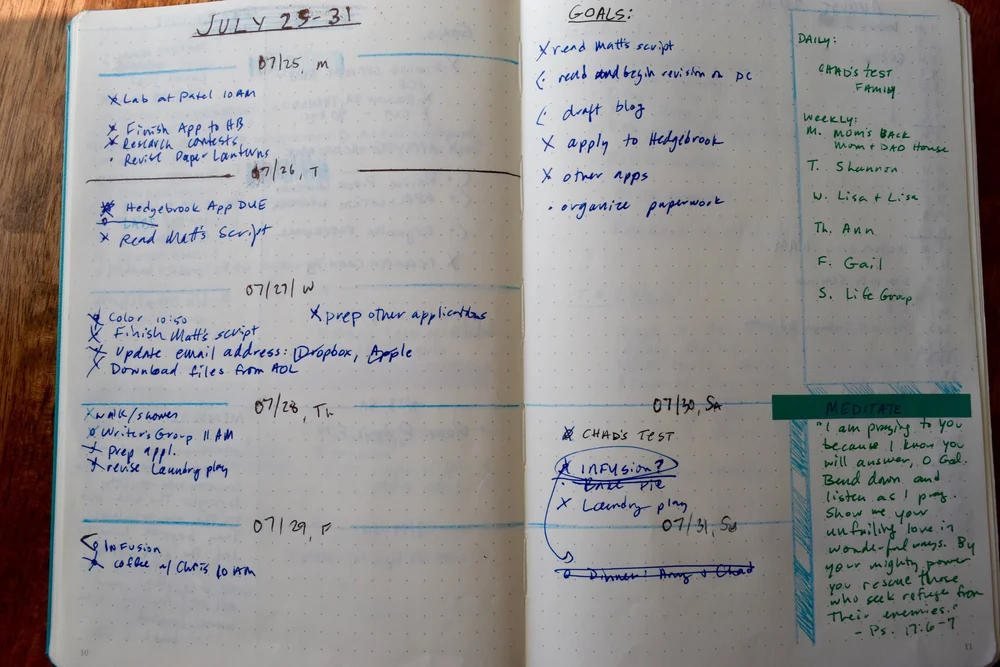 JULY 25-31
07/25, M
x Lab at Patel 10AM
x Finish App to HB
x Research contests
· Revise Paper Lanterns
07/26, T
x Hedgebrook App DUE
x Read Matt's Script
07/27/ W
x Color 10:50
x prep other applications
x Finish Matt's script
x Update email address: Dropbox, Apple
x Download files from AOL
07/28, Th
x walk/shower
o Writer's Group 11 AM
x prep appl.
x revise Laundry play
07/29, F
o Infusion
x coffee w/ Chris 10 AM
10
GOALS:
x read Matt's script
( · read and begin revision on DC
( · draft blog
x apply to Hedgebrook
x other apps
· organize paperwork
07/30, Sa
x CHAD'S TEST
x INFUSION?
· Bake Pie
x Laundry play
07/31, Su
o Dinner: Amy & Chad
DAILY:
CHAD'S TEST
FAMILY
WEEKLY:
M. MOM'S BACK
Mom + DAD House
T. Shannon
W. Lisa + Lisa
Th. Ann
F. Gail
S. Life Group
MEDITATE
"I am praying to you
because I know you
will answer, O God.
Bend down and
listen as I pray.
Show me your
unfailing love in
wonderful ways. By
your mighty power
you rescue those
who seek refuge from
their enemies."
- Ps. 17:6-7
11